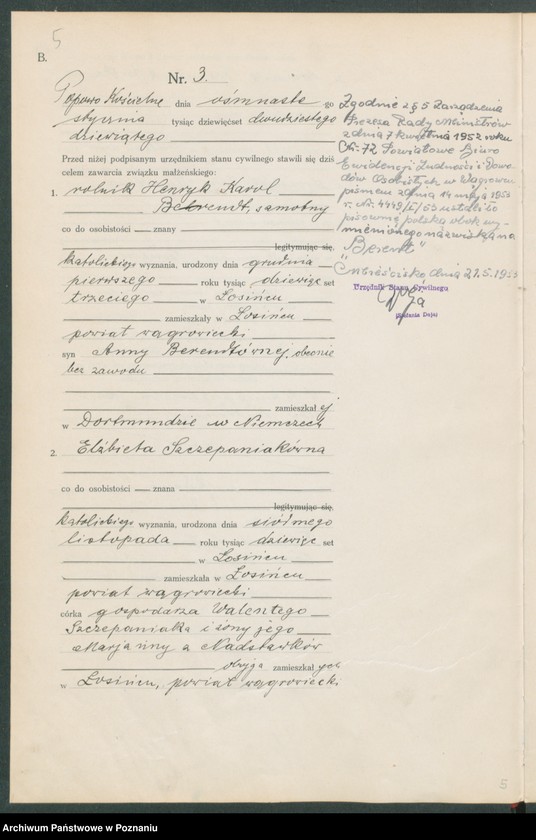 5
B.
Nr. 3.
Popowo Kościelne dnia ośmnaste go
stycznia tysiąc dziewięćset dwudziestego
dziewiątego
Przed niżej podpisanym urzędnikiem stanu cywilnego stawili się dziś
celem zawarcia związku małżeńskiego:
1. rolnik Henryk Karol
Berendt, samotny
co do osobistości — znany
legitymując się,
katolickiego wyznania, urodzony dnia grudnia
pierwszego roku tysiąc dziewięć set
trzeciego w Łosińcu
zamieszkały w Łosińcu
powiat wągrowiecki
syn Anny Berendtównej, obecnie
bez zawodu
zamieszkał ej
w Dortmundzie w Niemczech
2. Elżbieta Szczepaniakówna
co do osobistości — znana
legitymując się,
katolickiego wyznania, urodzona dnia siódmego
listopada roku tysiąc dziewięć set
w Łosińcu
zamieszkała w Łosińcu
powiat wągrowiecki
córka gospodarza Walentego
Szczepaniaka i żony jego
Marjanny z Nadstawków
oboja zamieszkał ych
w Łosińcu, powiat wągrowiecki
Zgodnie z § 5 Zarządzenia
Prezesa Rady Ministrów
z dnia 7 kwietnia 1952 roku
Nr. 72 Powiatowe Biuro
Ewidencji Ludności i Dowo-
dów Osobistych w Wągrowcu
pismem z dnia 14 maja 1953
r. Nr. 4449/II/53 ustaliło
pisownię polską obok wy-
mienionego nazwiska na
"Berent"
Mieścisko, dnia 21.5.1953
Urzędnik Stanu Cywilnego
5
Archiwum Państwowe w Poznaniu